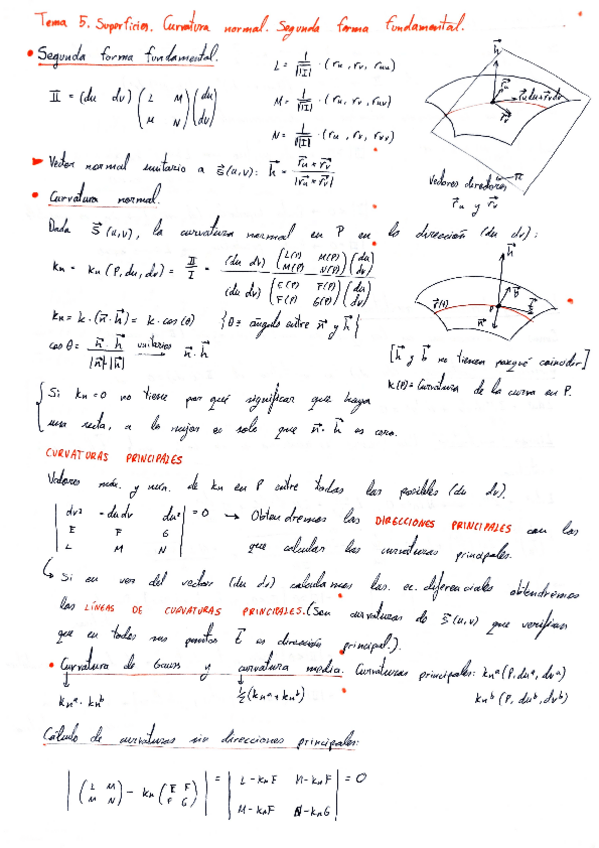 Tema 5. Superficies. Curvatura normal. Segunda forma fundamental.
• Segunda forma fundamental.
II = (du dv) (L M / M N) (du / dv)
L = 1/√|I| · (ru, rv, ruu)
M = 1/√|I| · (ru, rv, ruv)
N = 1/√|I| · (ru, rv, rvv)
h
ru
ru du + rv dv
rv
π
Vectores directores
ru y rv
► Vector normal unitario a S(u,v): h = ru × rv / |ru × rv|
• Curvatura normal.
Dada S(u,v), la curvatura normal en P en la dirección (du dv):
kn = kn(P, du, dv) = II / I = (du dv) (L(P) M(P) / M(P) N(P)) (du / dv) / (du dv) (E(P) F(P) / F(P) G(P)) (du / dv)
h
b
r(t)
P
t
n
kn = k · (n · h) = k · cos(θ) {θ ≡ ángulo entre n y h}
cos θ = n · h / |n|·|h| unitarios n · h
[h y b no tienen porqué coincidir]
k(P) = Curvatura de la curva en P.
{ Si kn = 0 no tiene por qué significar que haya
una recta, a lo mejor es solo que n · h es cero.
CURVATURAS PRINCIPALES
Valores máx. y mín. de kn en P entre todas las posibles (du dv).
| dv² -du dv du² / E F G / L M N | = 0 → Obtendremos las DIRECCIONES PRINCIPALES con las
que calcular las curvaturas principales.
↳ Si en vez del vector (du dv) calculamos las ec. diferenciales obtendremos
las LÍNEAS DE CURVATURAS PRINCIPALES. (Son curvaturas de S(u,v) que verifican
que en todos sus puntos t es dirección principal.).
• Curvatura de Gauss y curvatura media. Curvaturas principales: knᵃ(P, duᵃ, dvᵃ)
knᵃ · knᵇ
½(knᵃ + knᵇ)
knᵇ (P, duᵇ, dvᵇ)
Cálculo de curvaturas sin direcciones principales:
| (L M / M N) - kn (E F / F G) | = | L - knE M - knF / M - knF N - knG | = 0